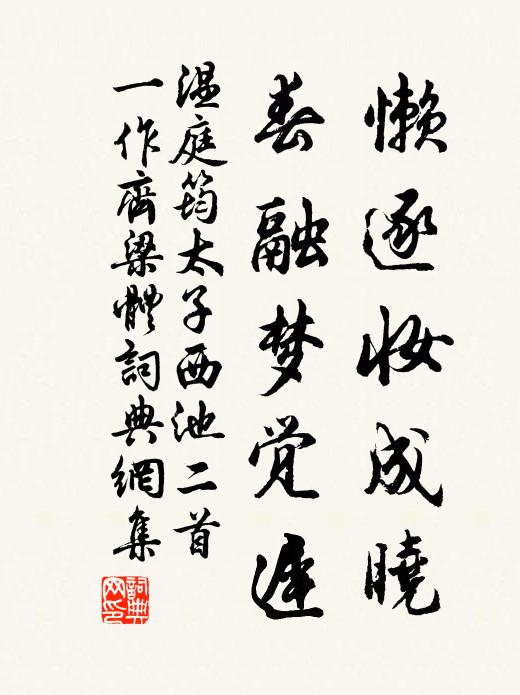 懒逐妆成晓
春融梦觉迟
温庭筠太子西池二首
一作齊梁體詞典網集
詞典网印